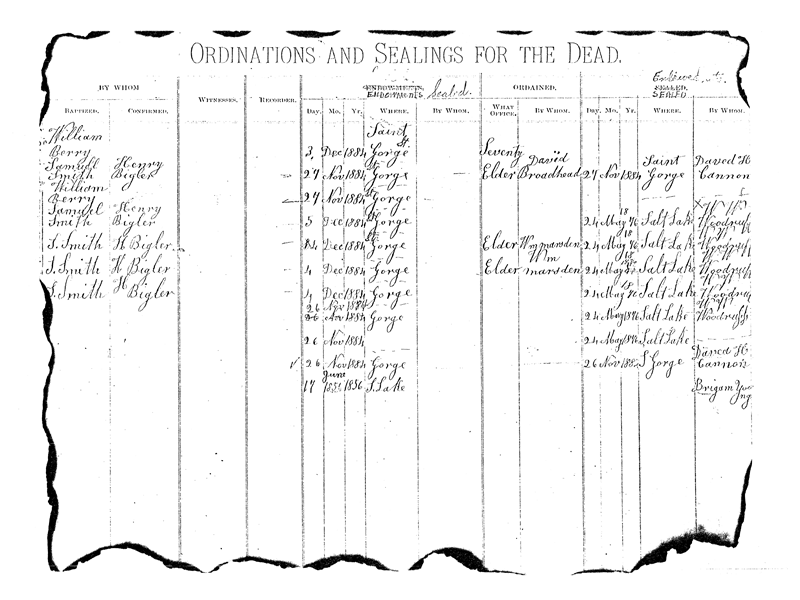 ORDINATIONS AND SEALINGS FOR THE DEAD.
BY WHOM ENDOWMENTS, Sealed. ORDAINED. SEALED.
ENDOWMENTS SEALED
BAPTIZED. CONFIRMED. WITNESSES. RECORDER. DAY. MO. YR. WHERE. BY WHOM. WHAT OFFICE. BY WHOM. DAY. MO. YR. WHERE. BY WHOM.
William Saint
Berry 3 Dec 1884 Gorge Seventy David Saint David H
Samuel Henry
Smith Bigler 27 Nov 1884 Gorge Elder Broadhead 27 Nov 1884 Gorge Cannon
William
Berry 27 Nov 1884 St Gorge
Samuel Henry
Smith Bigler 3 Dec 1884 Gorge 24 May Salt Lake Woodruff
S. Smith H Bigler Dec 1884 Gorge Elder Wm marsden 24 May Salt Lake Woodruff
S. Smith H Bigler 4 Dec 1884 Gorge Elder Wm marsden 24 May Salt Lake Woodruff
S. Smith H Bigler 4 Dec 1884 Gorge 24 May Salt Lake Woodruff
26 Nov 1884 Gorge 24 May 1876 Salt Lake Woodruff
26 Nov 1884 24 May 1876 Salt Lake
David H
26 Nov 1884 Gorge 26 Nov S Gorge Cannon
June
17 1856 S. Lake Brigam Young